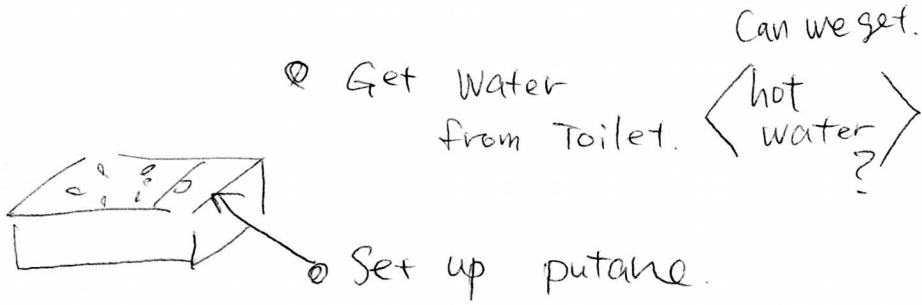 Can we get.
Get Water
from Toilet.
hot
water
?
Set up putane.